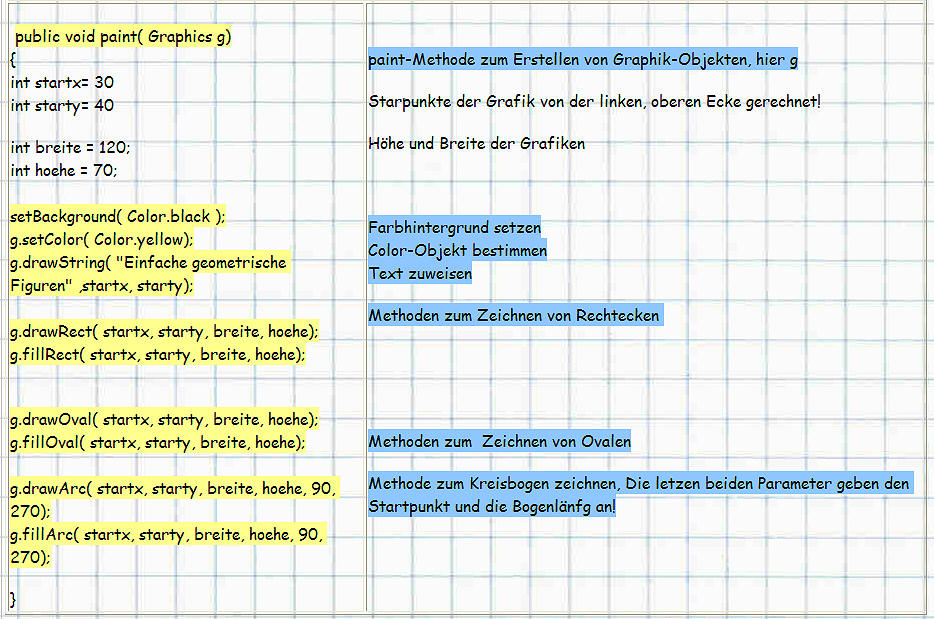 public void paint( Graphics g)
{
int startx= 30
int starty= 40
int breite = 120;
int hoehe = 70;
setBackground( Color.black );
g.setColor( Color.yellow);
g.drawString( "Einfache geometrische
Figuren" ,startx, starty);
g.drawRect( startx, starty, breite, hoehe);
g.fillRect( startx, starty, breite, hoehe);
g.drawOval( startx, starty, breite, hoehe);
g.fillOval( startx, starty, breite, hoehe);
g.drawArc( startx, starty, breite, hoehe, 90,
270);
g.fillArc( startx, starty, breite, hoehe, 90,
270);
}
paint-Methode zum Erstellen von Graphik-Objekten, hier g
Starpunkte der Grafik von der linken, oberen Ecke gerechnet!
Höhe und Breite der Grafiken
Farbhintergrund setzen
Color-Objekt bestimmen
Text zuweisen
Methoden zum Zeichnen von Rechtecken
Methoden zum Zeichnen von Ovalen
Methode zum Kreisbogen zeichnen, Die letzen beiden Parameter geben den
Startpunkt und die Bogenlänfg an!